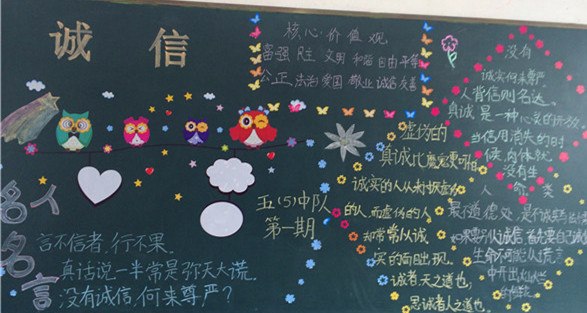 诚信
核心价值观
富强 民主 文明 和谐 自由 平等
公正 法治 爱国 敬业 诚信 友善
名人名言
言不信者,行不果。
真话说一半常是弥天大谎。
没有诚信,何来尊严?
五(5)中队
第一期
虚伪的
真诚比魔鬼更可怕
诚实的人从来
的人,而虚伪的人
却常常以诚
实的面目出现。
诚者,天之道也;
思诚者,人之道也。
没有
诚实何来尊严
人背信则名不达。
真诚是一种心灵的开放
当信用消失的时
候,肉体就
没有生
命
人类
最不道德处,是不诚实
生命不可能从谎言
中开出灿烂
的鲜花